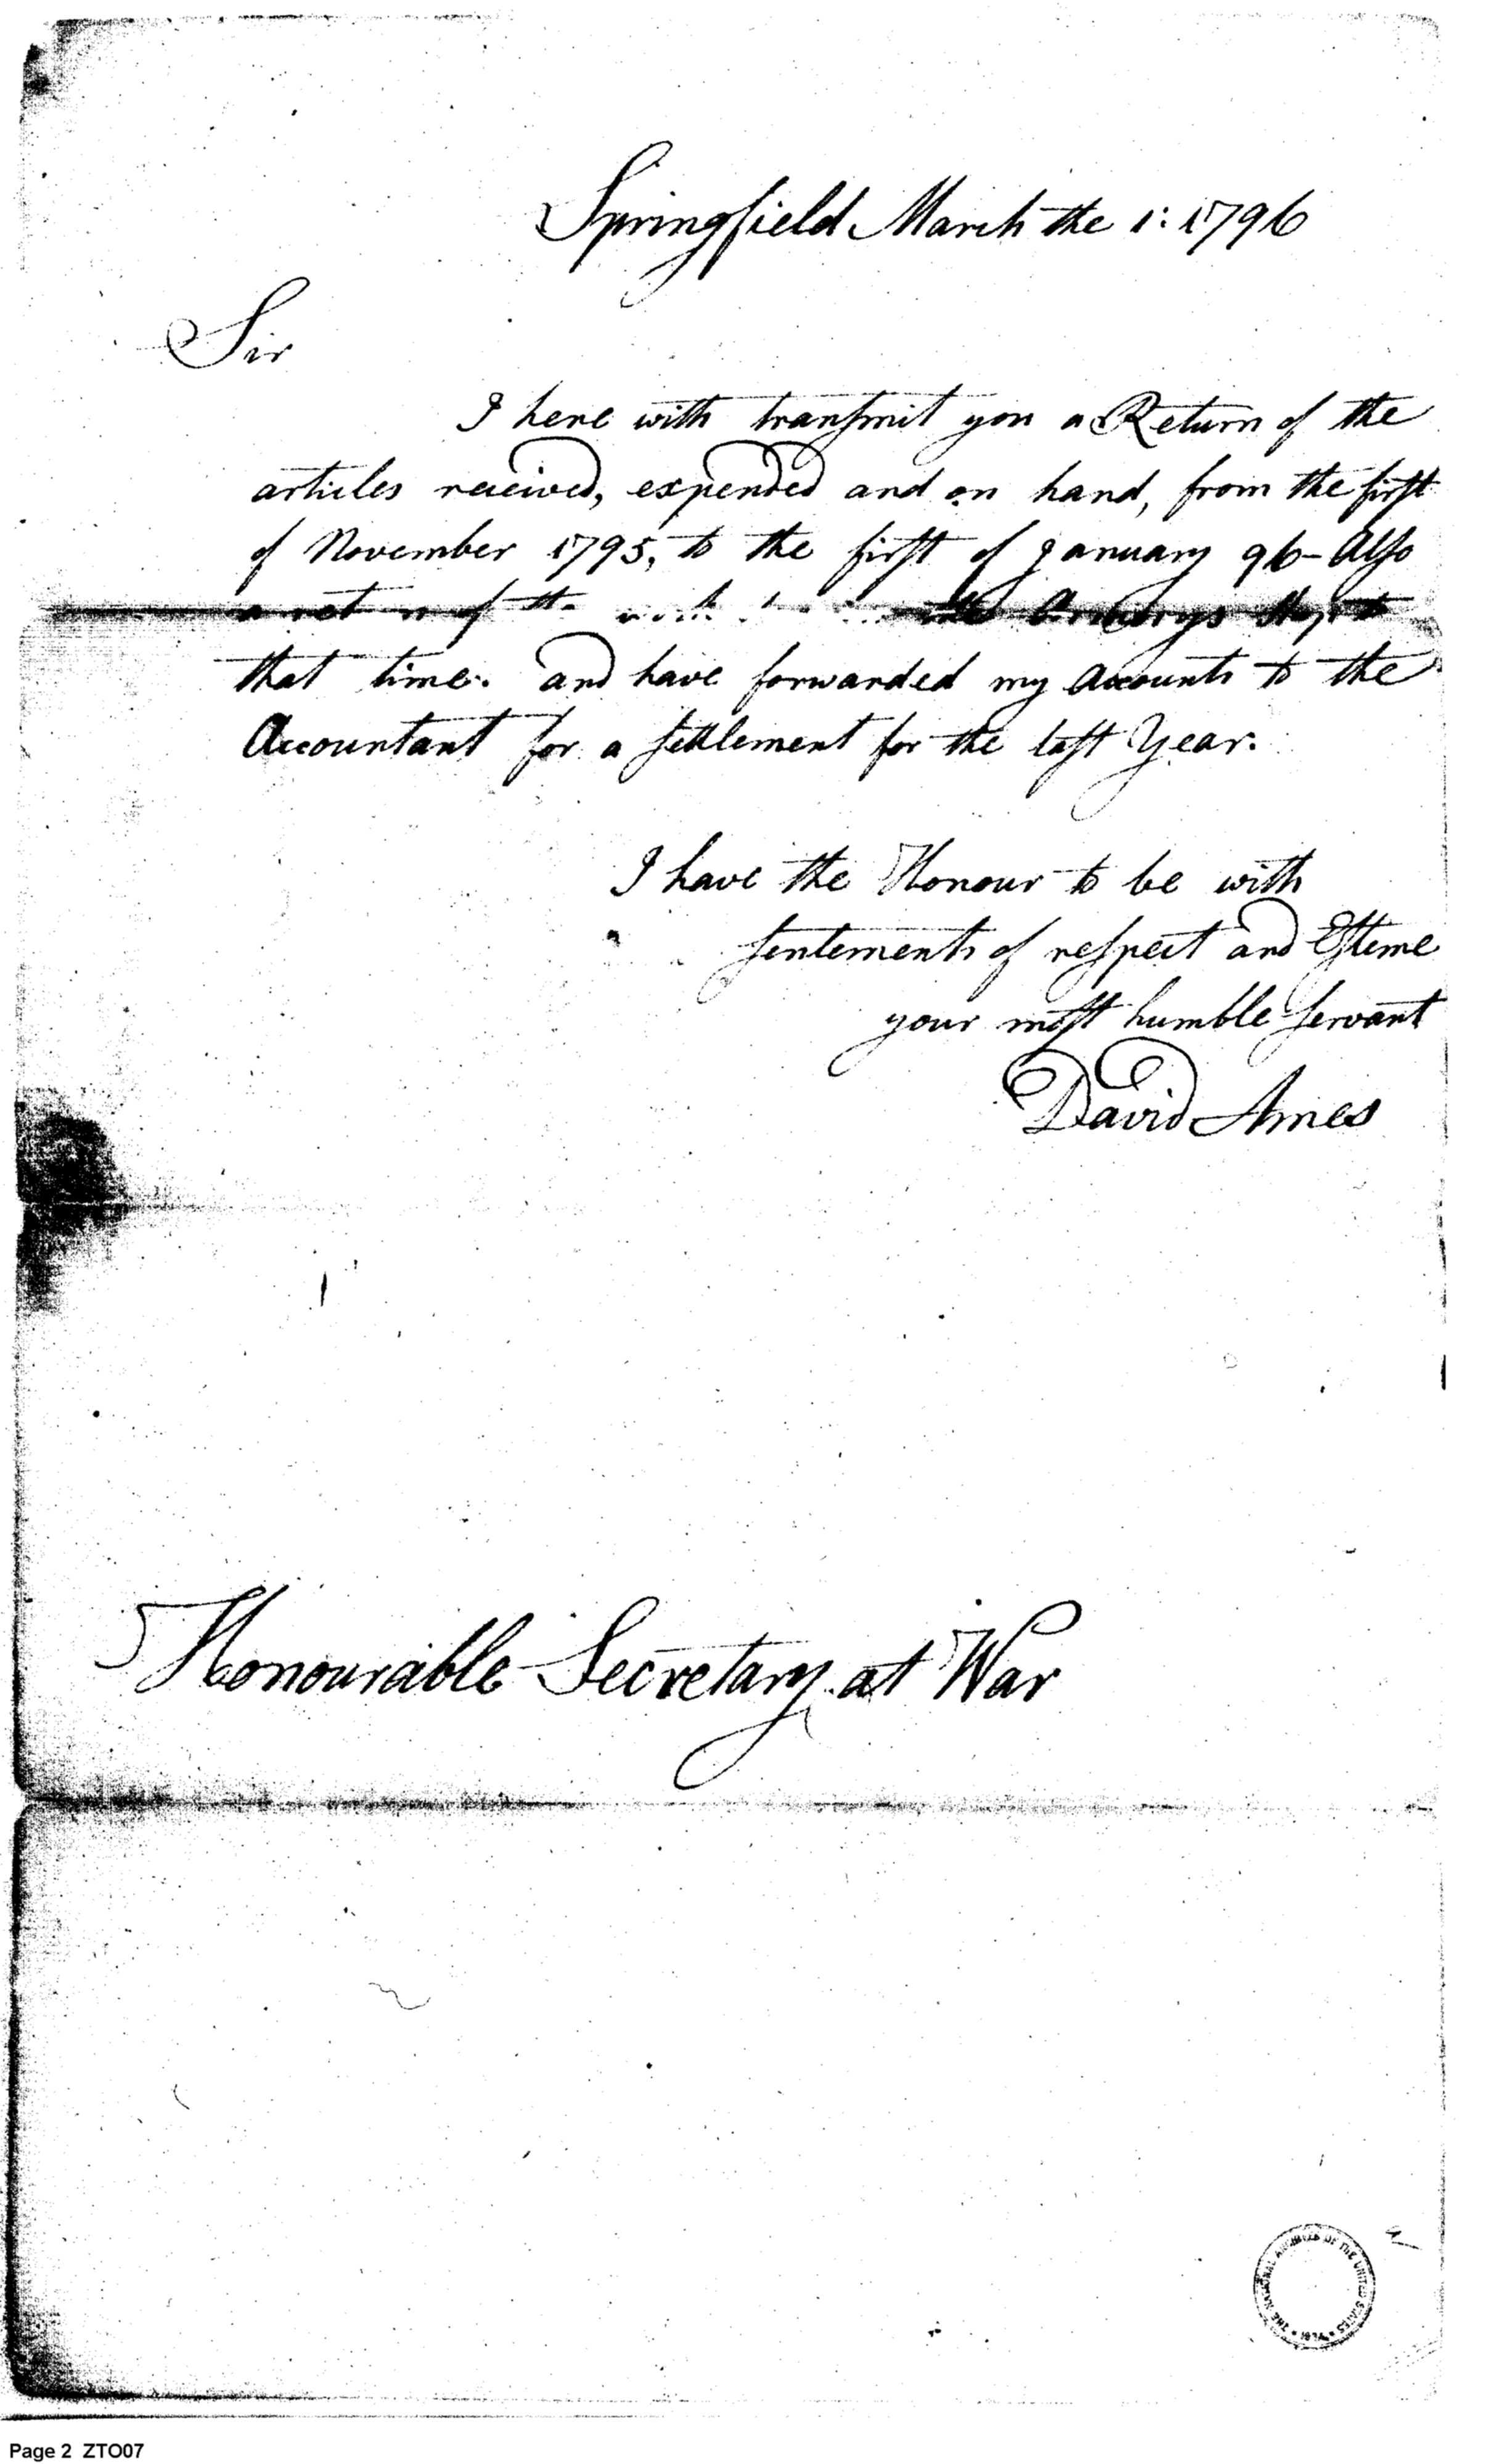 Springfield March the 1: 1796
Sir
I here with transmit you a Return of the
articles received, expended and on hand, from the first
of November 1795, to the first of January 96- Also
a return of the the Armorys
that time. and have forwarded my Accounts to the
Accountant for a settlement for the last Year.
I have the Honour to be with
sentements of respect and Esteme
your most humble servant
David Ames
Honourable Secretary at War
THE NATIONAL ARCHIVES OF THE UNITED STATES
Page 2 ZTO07